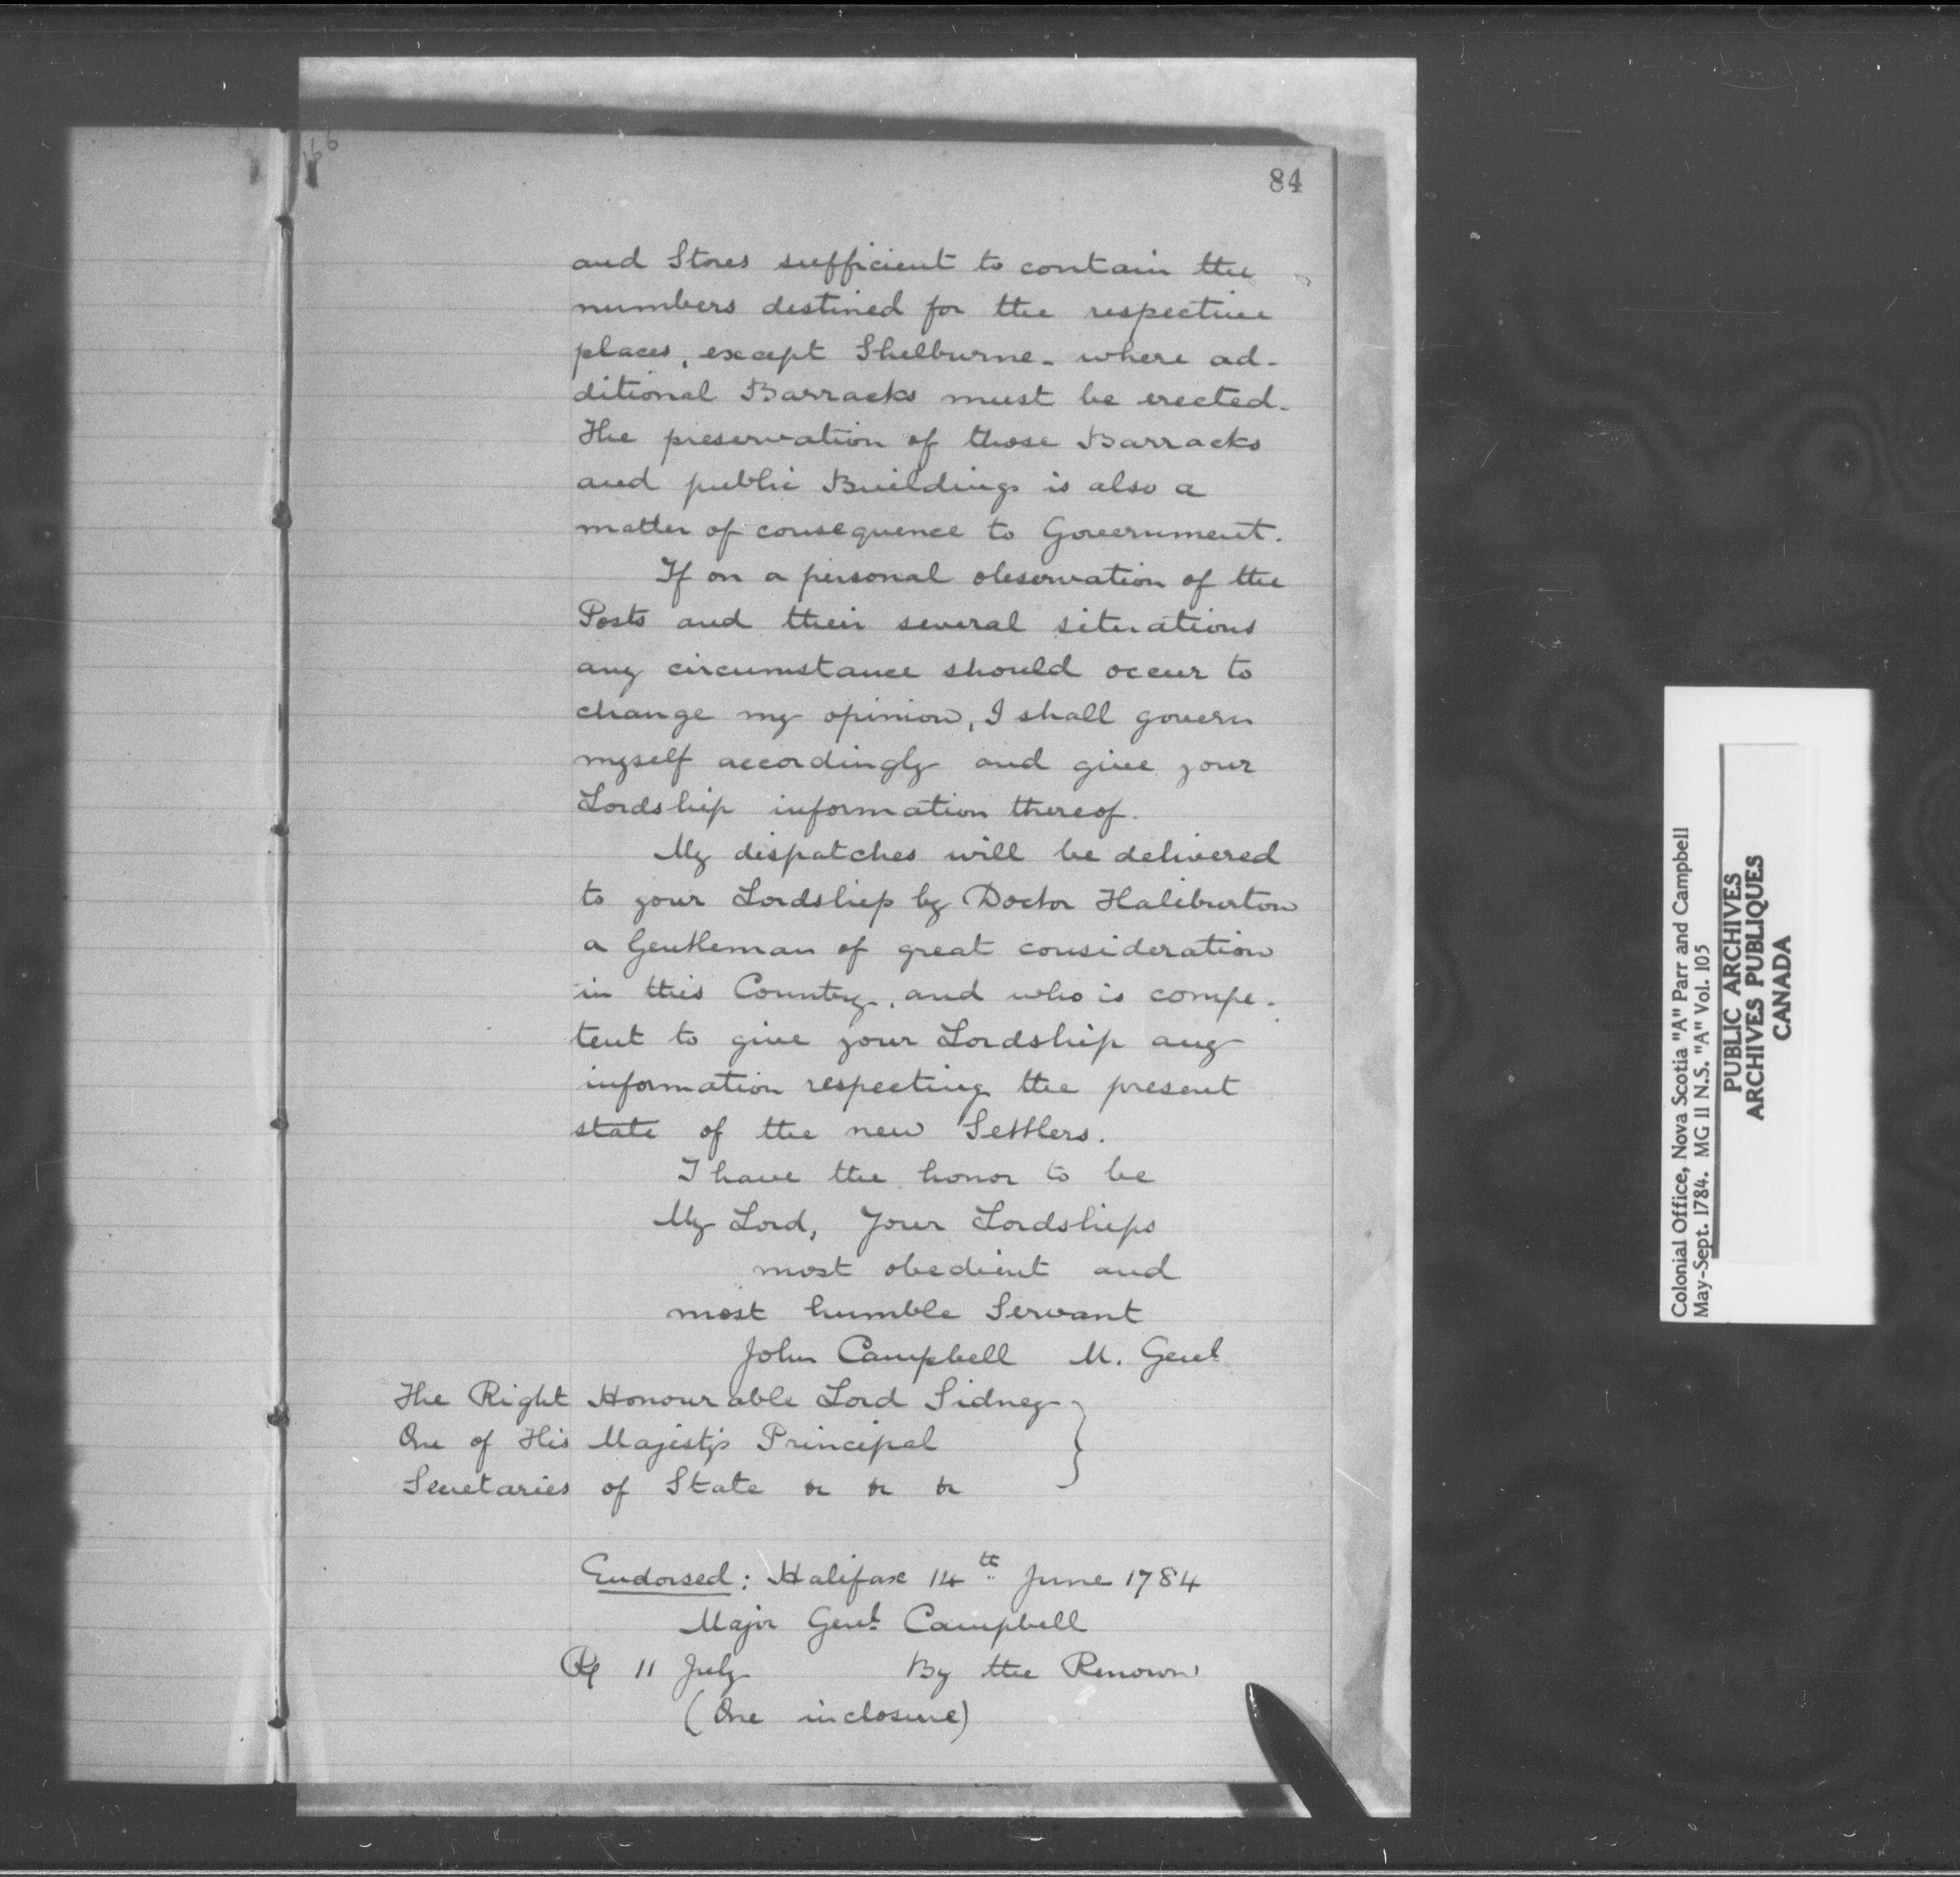 84
and Stores sufficient to contain the
numbers destined for the respective
places, except Shelburne - where ad-
ditional Barracks must be erected.
The preservation of those Barracks
and public Buildings is also a
matter of consequence to Government.
If on a personal observation of the
Posts and their several situations
any circumstance should occur to
change my opinion, I shall govern
myself accordingly and give your
Lordship information thereof.
My dispatches will be delivered
to your Lordship by Doctor Haliburton
a Gentleman of great consideration
in this Country, and who is compe-
tent to give your Lordship any
information respecting the present
state of the new Settlers.
I have the honor to be
My Lord, Your Lordships
most obedient and
most humble Servant
John Campbell M. Genl
The Right Honourable Lord Sidney
One of His Majesty's Principal
Secretaries of State &c &c &c
Endorsed: Halifax 14th June 1784
Major Genl Campbell
R 11 July By the Renown
(One inclosure)
Colonial Office, Nova Scotia "A" Parr and Campbell
May-Sept. 1784. MG 11 N.S. "A" Vol. 105
PUBLIC ARCHIVES
ARCHIVES PUBLIQUES
CANADA